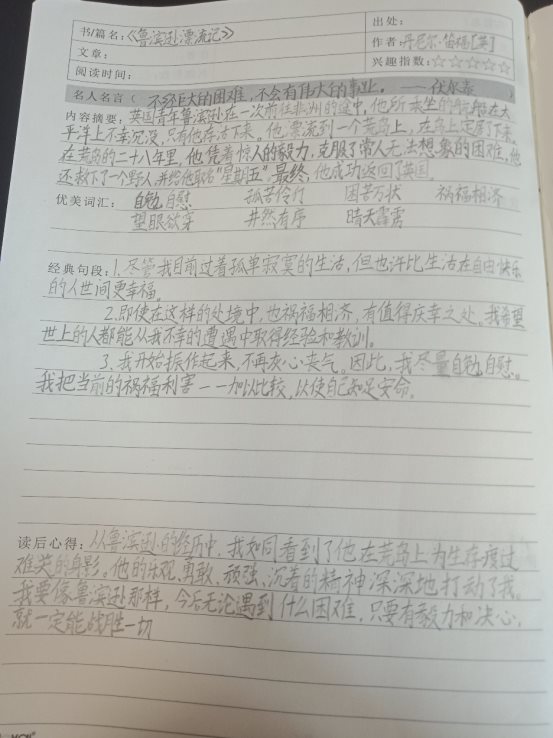 书/篇名:《鲁滨逊漂流记》 出处:
文章: 作者:丹尼尔·笛福[英]
阅读时间: 兴趣指数:☆☆☆☆☆
名人名言( 不经巨大的困难,不会有伟大的事业。 ——伏尔泰 )
内容摘要:英国青年鲁滨逊在一次前往非洲的途中,他所乘坐的航船在太
平洋上不幸沉没,只有他存活下来。他漂流到一个荒岛上,在岛上定居下来。
在荒岛的二十八年里,他凭着惊人的毅力,克服了常人无法想象的困难,他
还救下了一个野人,并给他取名"星期五"。最终,他成功返回了英国。
优美词汇: 自勉自慰 孤苦伶仃 困苦万状 祸福相济
望眼欲穿 井然有序 晴天霹雳
经典句段:1.尽管我目前过着孤单寂寞的生活,但也许比生活在自由快乐
的人世间更幸福。
2.即使在这样的处境中,也祸福相济,有值得庆幸之处。我希望
世上的人都能从我不幸的遭遇中取得经验和教训。
3.我开始振作起来,不再灰心丧气。因此,我尽量自勉自慰。
我把当前的祸福利害一一加以比较,以使自己知足安命。
读后心得:从鲁滨逊的经历中,我如同看到了他在荒岛上为生存度过
难关的身影。他的乐观、勇敢、顽强、沉着的精神深深地打动了我。
我要像鲁滨逊那样,今后无论遇到什么困难,只要有毅力和决心,
就一定能战胜一切